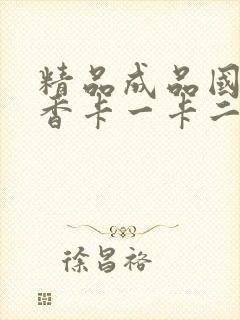 精品成品國
香卡一卡二
徐昌裕